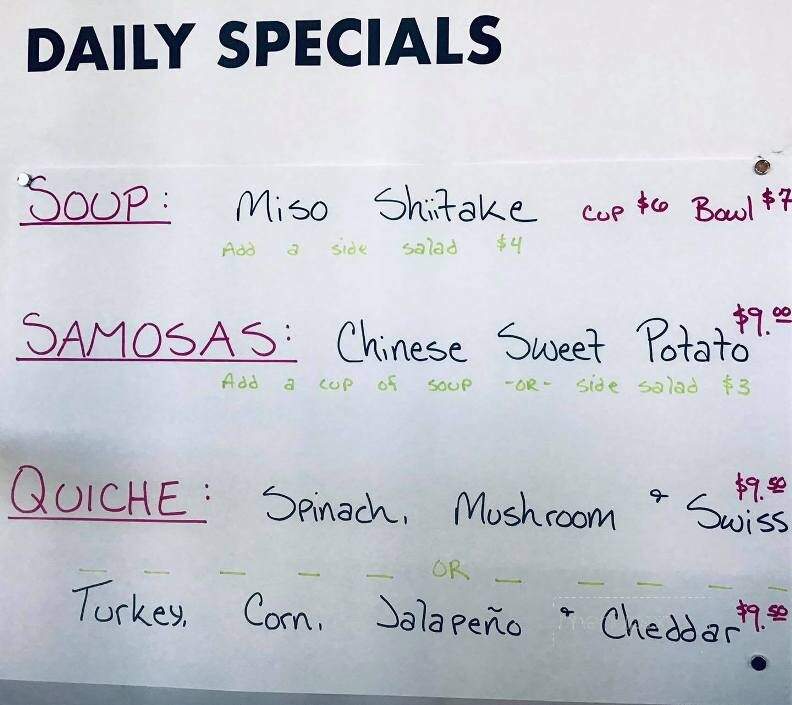 DAILY SPECIALS
SOUP: Miso Shiitake Cup $6 Bowl $7
Add a side salad $4
SAMOSAS: Chinese Sweet Potato $9.00
Add a cup of soup -OR- side salad $3
QUICHE: Spinach, Mushroom & Swiss $9.50
OR
Turkey, Corn, Jalapeño & Cheddar $9.50